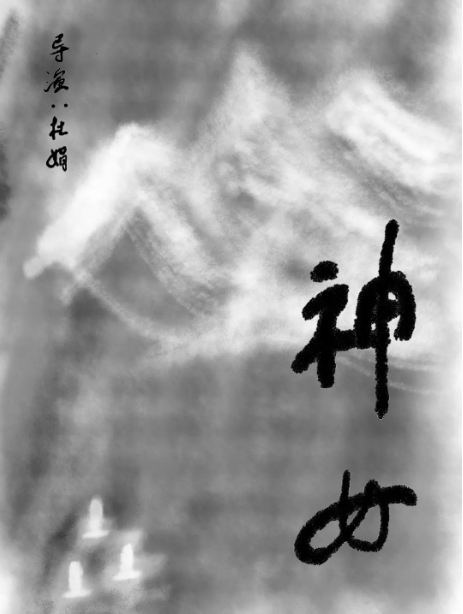 神女
导演：杜娟